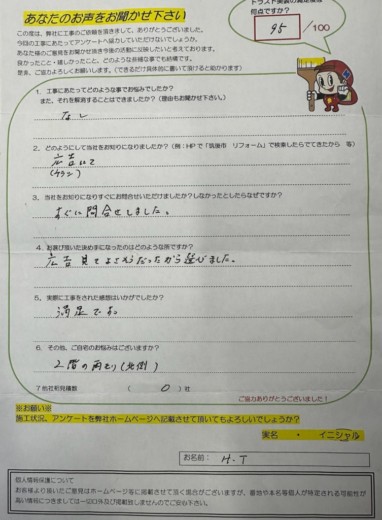 あなたのお声をお聞かせ下さい
何点ですか?
95 /100
この度は、弊社に工事のご依頼を頂きまして、ありがとうございました。
今回の工事にあたってアンケートへ協力していただけないでしょうか。
あなた様のご意見をお聞かせ頂き今後の活動に反映したいと考えております。
良かったこと・嬉しかったこと、どのような些細な事でも結構です。
是非、ご協力よろしくお願いします。(できるだけ具体的に書いて頂けると助かります)
1. 工事にあたってどのような事でお悩みでしたか?
また、それを解消することはできましたか?(理由もお聞かせ下さい。)
なし
2. どのようにして当社をお知りになりましたか?(例:HPで「筑後市 リフォーム」で検索したらでてきたから 等)
広告にて
(チラシ)
3. 当社をお知りになりすぐにお問合せいただけましたか?しなかったとしたらなぜですか?
すぐに問合せしました。
4. お選び頂いた決め手になったのはどのような所ですか?
広告見てよさそうだったから選びました。
5. 実際に工事をされた感想はいかがでしたか?
満足です
6. その他、ご自宅のお悩みはございますか?
2階の雨もり(北側)
7 他社相見積数 ( 0 )社
ご協力ありがとうございました!
※お願い※
施工状況、アンケートを弊社ホームページへ記載させて頂いてもよろしいでしょうか?
実名 ・ イニシャル
お名前: H.T
個人情報保護について
お客様より頂いたご意見はホームページ等に掲載させて頂く場合がございますが、番地や本名等個人が特定される可能性が
高い情報につきましては一切公開及び掲載致しませんのでご安心下さい。